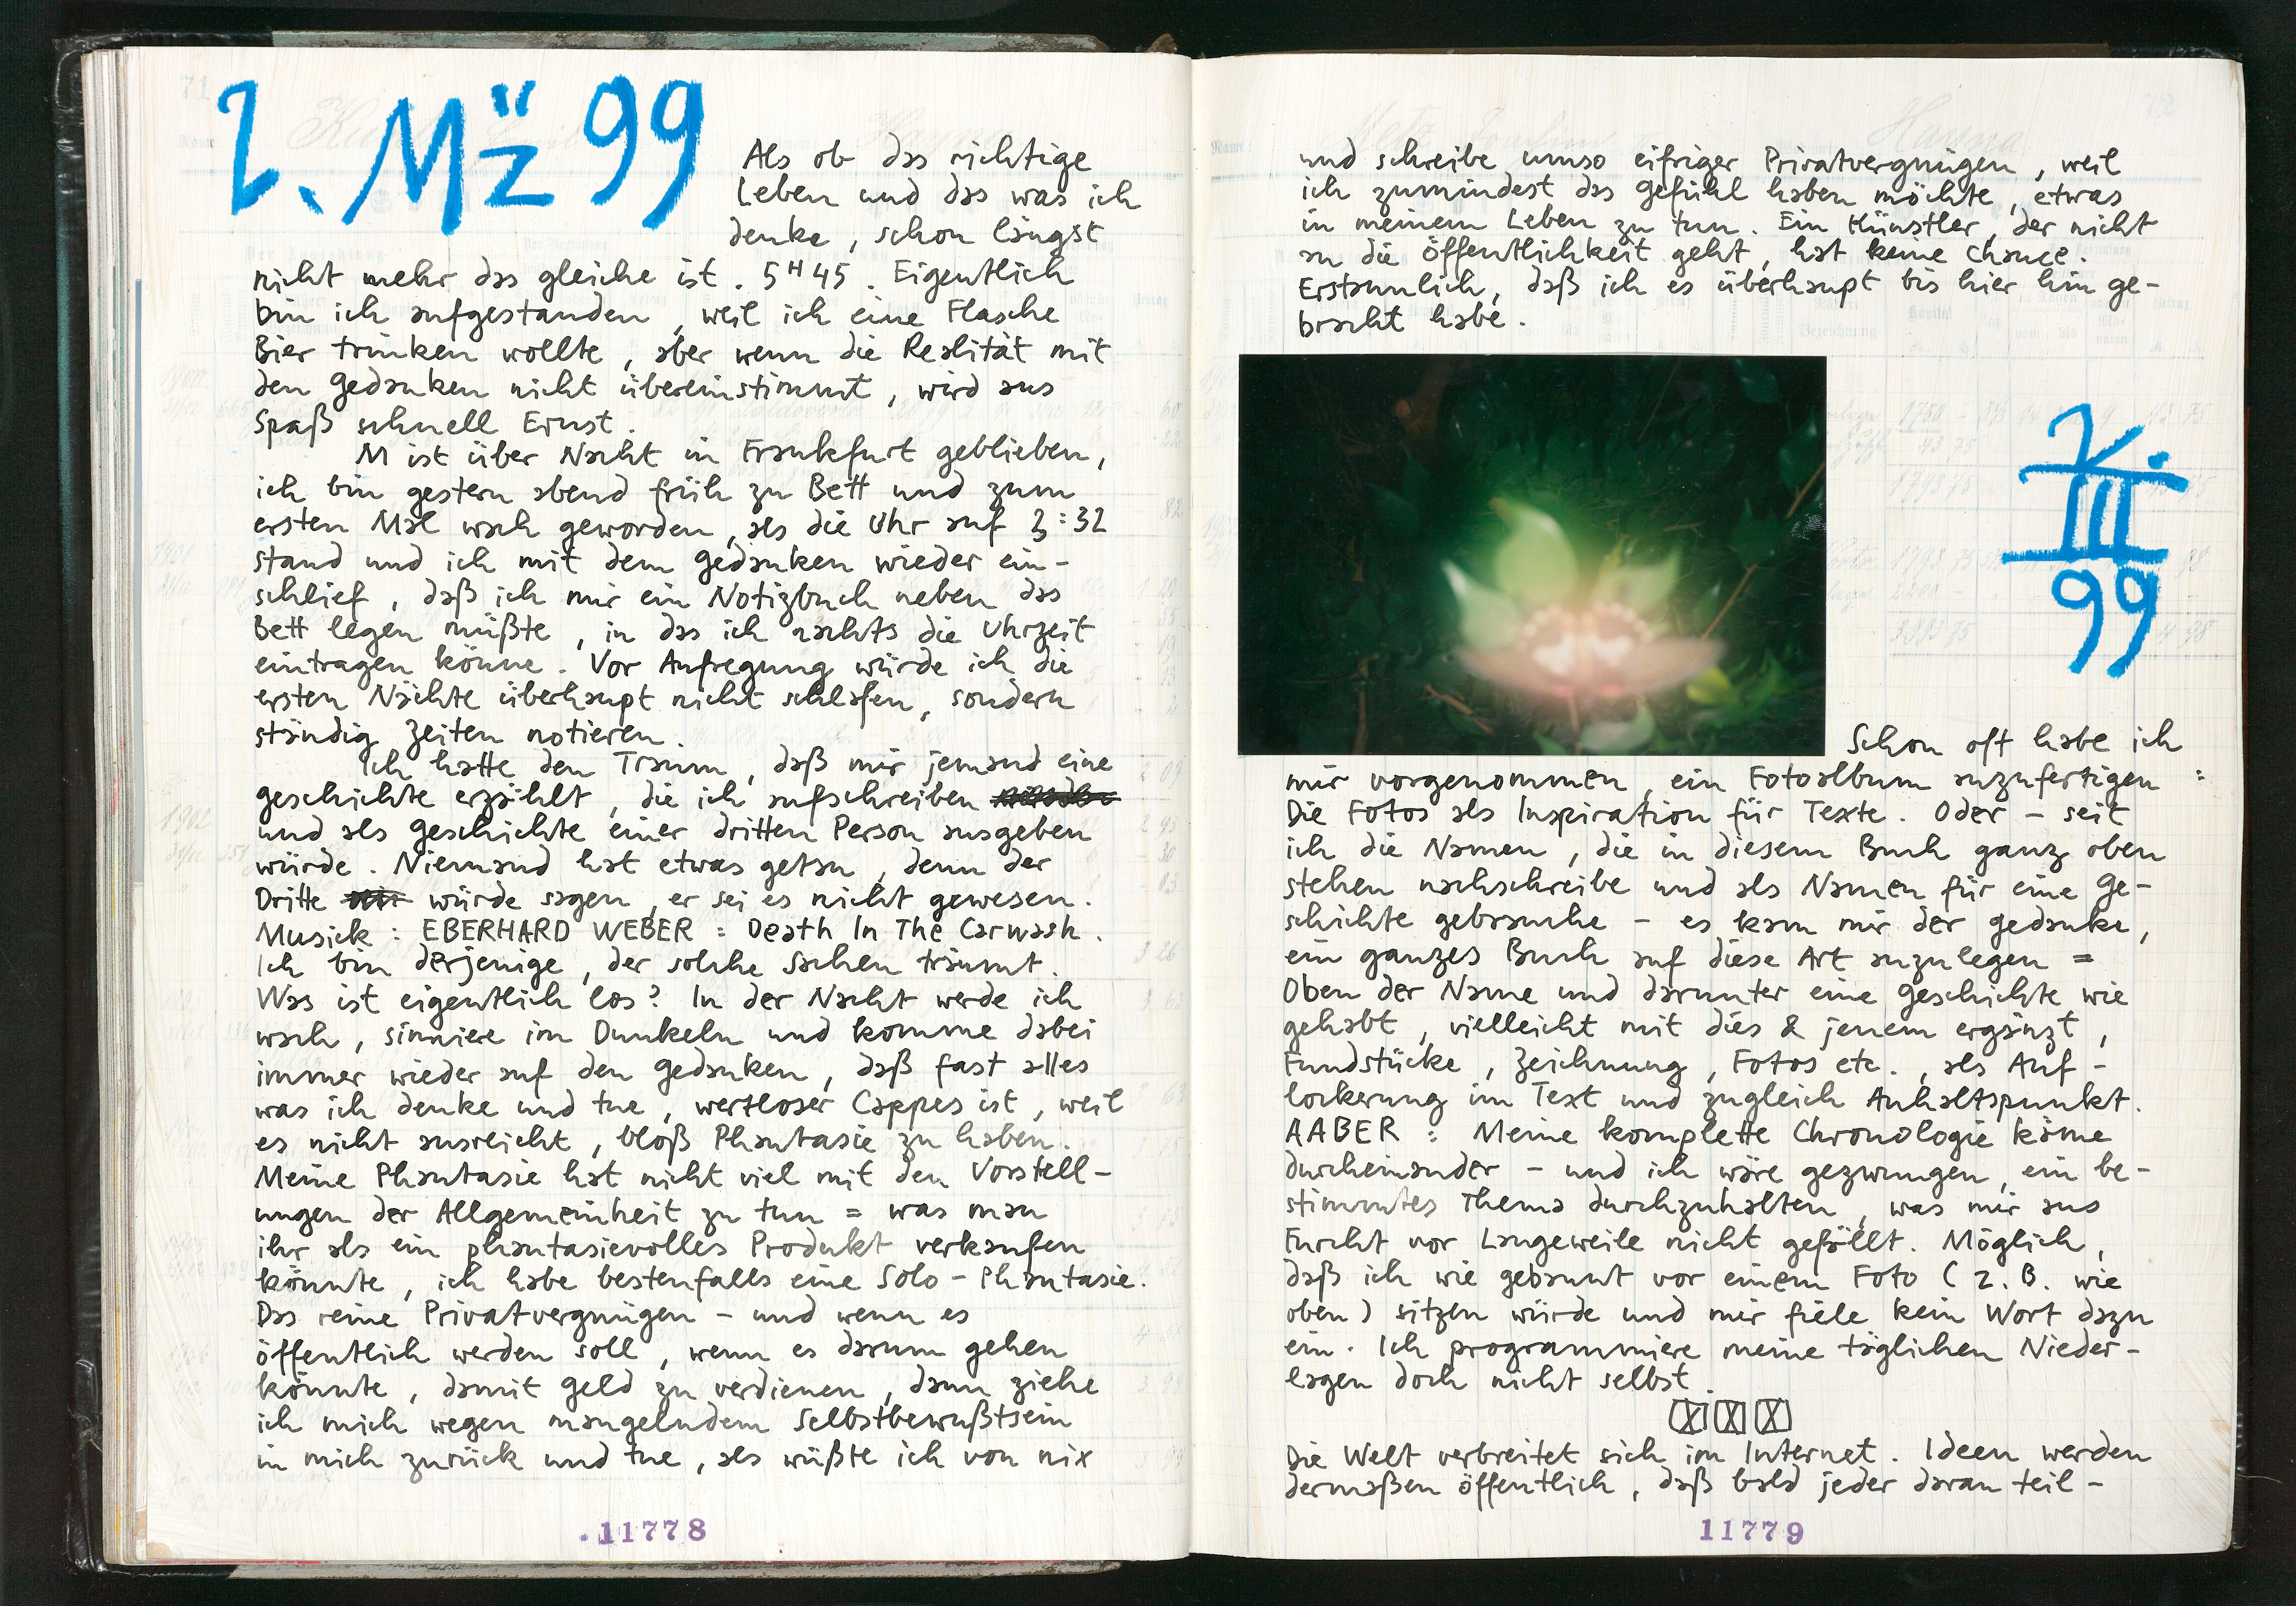 2. Mäz 99
Als ob das richtige
Leben und das was ich
denke, schon längst
nicht mehr das gleiche ist. 5H45. Eigentlich
bin ich aufgestanden, weil ich eine Flasche
Bier trinken wollte, aber wenn die Realität mit
den Gedanken nicht übereinstimmt, wird aus
Spaß schnell Ernst.
M ist über Nacht in Frankfurt geblieben,
ich bin gestern abend früh zu Bett und zum
ersten Mal wach geworden, als die Uhr auf 3:32
stand und ich mit dem Gedanken wieder ein-
schlief, daß ich mir ein Notizbuch neben das
Bett legen müßte, in das ich nachts die Uhrzeit
eintragen könne. Vor Aufregung würde ich die
ersten Nächte überhaupt nicht schlafen, sondern
ständig Zeiten notieren.
Ich hatte den Traum, daß mir jemand eine
Geschichte erzählt, die ich aufschreiben
und als Geschichte einer dritten Person ausgeben
würde. Niemand hat etwas getan, denn der
Dritte würde sagen, er sei es nicht gewesen.
Musick: EBERHARD WEBER: Death In The Carwash.
Ich bin derjenige, der solche Sachen träumt.
Was ist eigentlich los? In der Nacht werde ich
wach, sinniere im Dunkeln und komme dabei
immer wieder auf den Gedanken, daß fast alles
was ich denke und tue, wertloser Cappes ist, weil
es nicht ausreicht, bloß Phantasie zu haben.
Meine Phantasie hat nicht viel mit den Vorstell-
ungen der Allgemeinheit zu tun = was man
ihr als ein phantasievolles Produkt verkaufen
könnte, ich habe bestenfalls eine Solo-Phantasie.
Das reine Privatvergnügen - und wenn es
öffentlich werden soll, wenn es darum gehen
könnte, damit Geld zu verdienen, dann ziehe
ich mich wegen mangelndem Selbstbewußtsein
in mich zurück und tue, als wüßte ich von nix
.11778
und schreibe umso eifriger Privatvergnügen, weil
ich zumindest das Gefühl haben möchte, etwas
in meinem Leben zu tun. Ein Künstler, der nicht
an die Öffentlichkeit geht, hat keine Chance.
Erstaunlich, daß ich es überhaupt bis hier hin ge-
bracht habe.
2.
III
99
Schon oft habe ich
mir vorgenommen, ein Fotoalbum anzufertigen:
Die Fotos als Inspiration für Texte. Oder - seit
ich die Namen, die in diesem Buch ganz oben
stehen nachschreibe und als Namen für eine Ge-
schichte gebrauche - es kam mir der Gedanke,
ein ganzes Buch auf diese Art anzulegen =
Oben der Name und darunter eine Geschichte wie
gehabt, vielleicht mit dies & jenem ergänzt,
Fundstücke, Zeichnung, Fotos etc., als Auf-
lockerung im Text und zugleich Anhaltspunkt.
AABER: Meine komplette Chronologie käme
durcheinander - und ich wäre gezwungen, ein be-
stimmtes Thema durchzuhalten, was mir aus
Furcht vor Langeweile nicht gefällt. Möglich,
daß ich wie gebannt vor einem Foto (z.B. wie
oben) sitzen würde und mir fiele kein Wort dazu
ein. Ich programmiere meine täglichen Nieder-
lagen doch nicht selbst.
Die Welt verbreitet sich im Internet. Ideen werden
dermaßen öffentlich, daß bald jeder daran teil-
11779